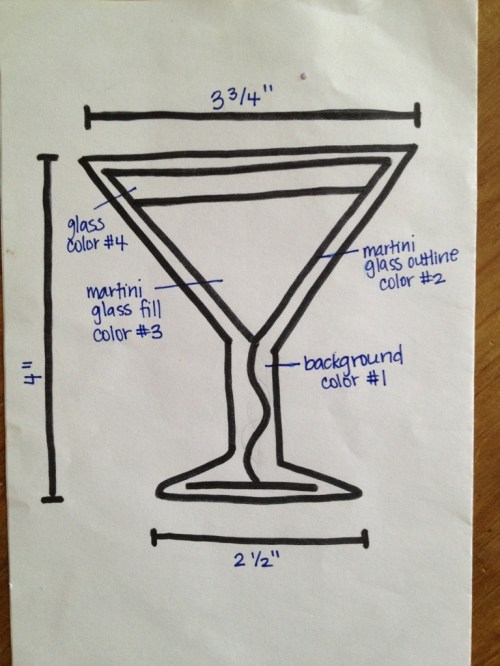 3 3/4"
glass
color #4
martini
glass outline
color #2
martini
glass fill
color #3
background
color #1
4"
2 1/2"